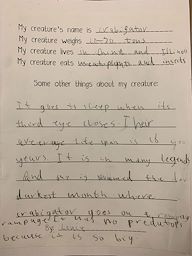 My creature's name is crabigator
My creature weighs 10-20 tons
My creature lives in and Illinois
My creature eats and insects
Some other things about my creature:
It goes to sleep when its
third eye closes. Their
average life span is 16
years. It is in many legends
And he is named the
darkest month where
crabigator goes on a
rampage it has no predators
because it is so big
By